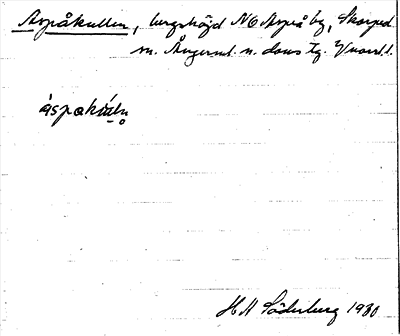 Aspåkullen, bergshöjd NO Aspå by, Skorped
sn. Ångerml. n. doms tg. Vnorrl. l.
áspᴂkúl̥n̥
H A Söderberg 1930